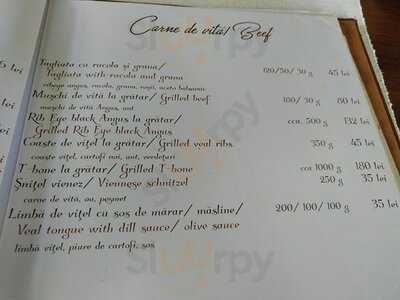 Carne de vita/ Beef
Tagliata cu rucola și grana/ 120/50/30 g 45 lei
Tagliata with rucola and grana
ribeye angus, rucola, grana, roșii, aceto balsamic
Mușchi de vită la grătar/ Grilled beef 180/30 g 80 lei
mușchi de vită Angus, unt
Rib Eye black Angus la grătar/ cca. 500 g 132 lei
Grilled Rib Eye black Angus
Coaste de vițel la grătar/ Grilled veal ribs 350 g 45 lei
coaste vițel, cartofi noi, unt, verdețuri
T-bone la grătar/ Grilled T-bone cca 1000 g 180 lei
Șnițel vienez/ Viennese schnitzel 250 g 35 lei
carne de vită, ou, pesmet
Limbă de vițel cu sos de mărar/ măsline/ 200/100/100 g 35 lei
Veal tongue with dill sauce/ olive sauce
limbă vițel, piure de cartofi, sos